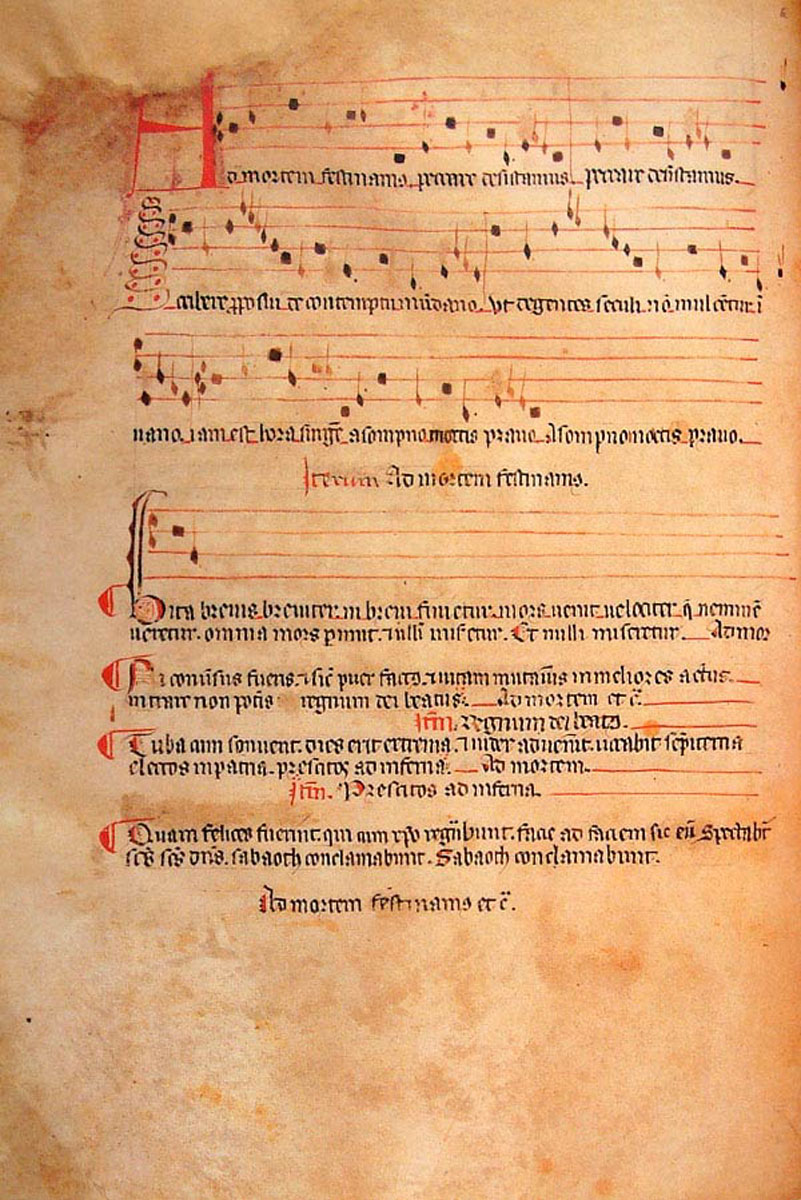 Ad mortem festinamus. peccare desistamus. peccare desistamus.
Scribere ꝓposui de contemptu mũdano. ut degentes seculi nõ mulcẽtur ĩ
uano. iam est hora surgẽ. a sompno mortis prauo. A sompno mortis prauo.
Iterum Ad mortem festinamus.
Vita breuis breuiter in breui finietur. mors uenit uelociter q̃ neminẽ
ueretur. omnia mors ꝑimit. ⁊ nulli miseretur. Et nulli miseretur. Ad mor
Ni conũsus fueris. ⁊ sic̃ puer factꝰ. ⁊ uitam mutaũis in meliores actus.
intrare non potis regnum dei beatus. Ad mortem et c̃.
Itm̃. regnum dei beatꝰ.
Tuba cum sonuerit. dies erit extrema. ⁊ iudex aduenit. uocabit sẽpiterna
electos in patria. prescitos ad inferna. Ad mortem.
Itm̃. Prescitos ad inferna.
Quam felices fuerint. qui cum xp̃o regñbunt. facie ad faciem sic eũ spectabt̃
sc̃s sc̃s dñs. sabaoth conclamabunt. Sabaoth conclamabunt.
Ad mortem festinamus et c̃.